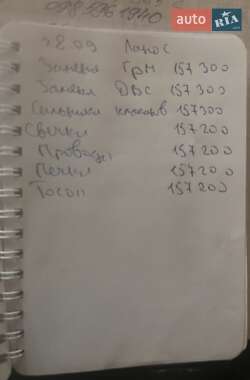 098 596 1940
auto RIA.com
28.09 Ланос
Замена ГРМ 157 300
Замена ДВС 157 300
Сальники клапанов 157300
Свечки 157 200
Провода 157 200
Печки 157200
Тосол 157200